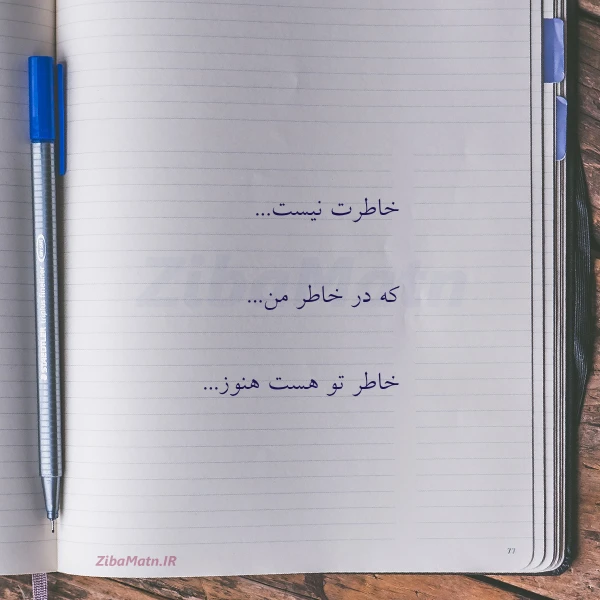 خاطرت نیست...
که در خاطر من...
خاطر تو هست هنوز...
ZibaMatn
STAEDTLER triplus fineliner
ZibaMatn.IR